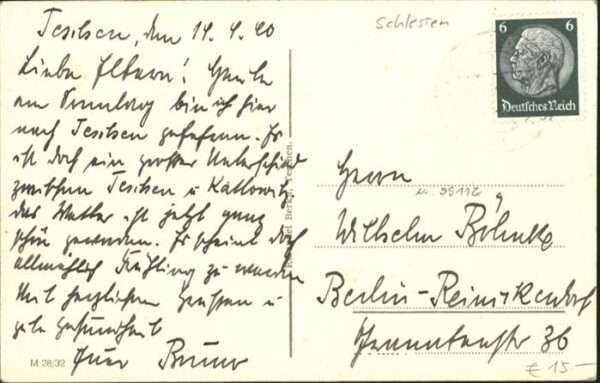 Teschen, den 14.4.40
Liebe Eltern! Heute
am Sonntag bin ich hier
nach Teschen gefahren. Es
ist doch ein großer Unterschied
zwischen Teschen u Kattowitz
das Wetter ist jetzt ganz
schön geworden. Es scheint doch
allmählich Frühling zu werden
Mit herzlichen Grüssen u
gute Gesundheit
Euer Bruno
M 28/32
Schlesien
6 6
Deutsches Reich
Herrn
Wilhelm
Berlin-Reinickendorf
36
€ 15.-